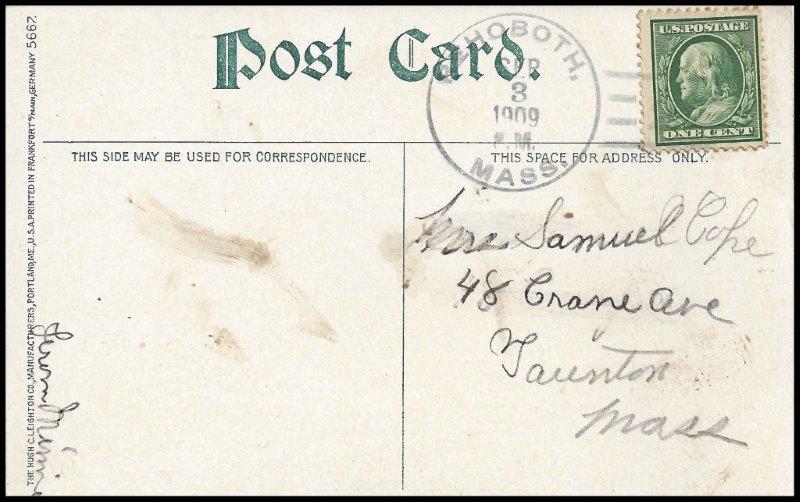 Post Card.
REHOBOTH,
SEP
3
1909
P.M.
MASS.
U.S.POSTAGE
ONE CENT
THIS SIDE MAY BE USED FOR CORRESPONDENCE.
THIS SPACE FOR ADDRESS ONLY.
Mrs Samuel Cope
48 Crane Ave
Taunton
Mass
THE HUGH C. LEIGHTON CO., MANUFACTURERS, PORTLAND, ME., U.S.A. PRINTED IN FRANKFORT o/MAIN, GERMANY 5667.
from